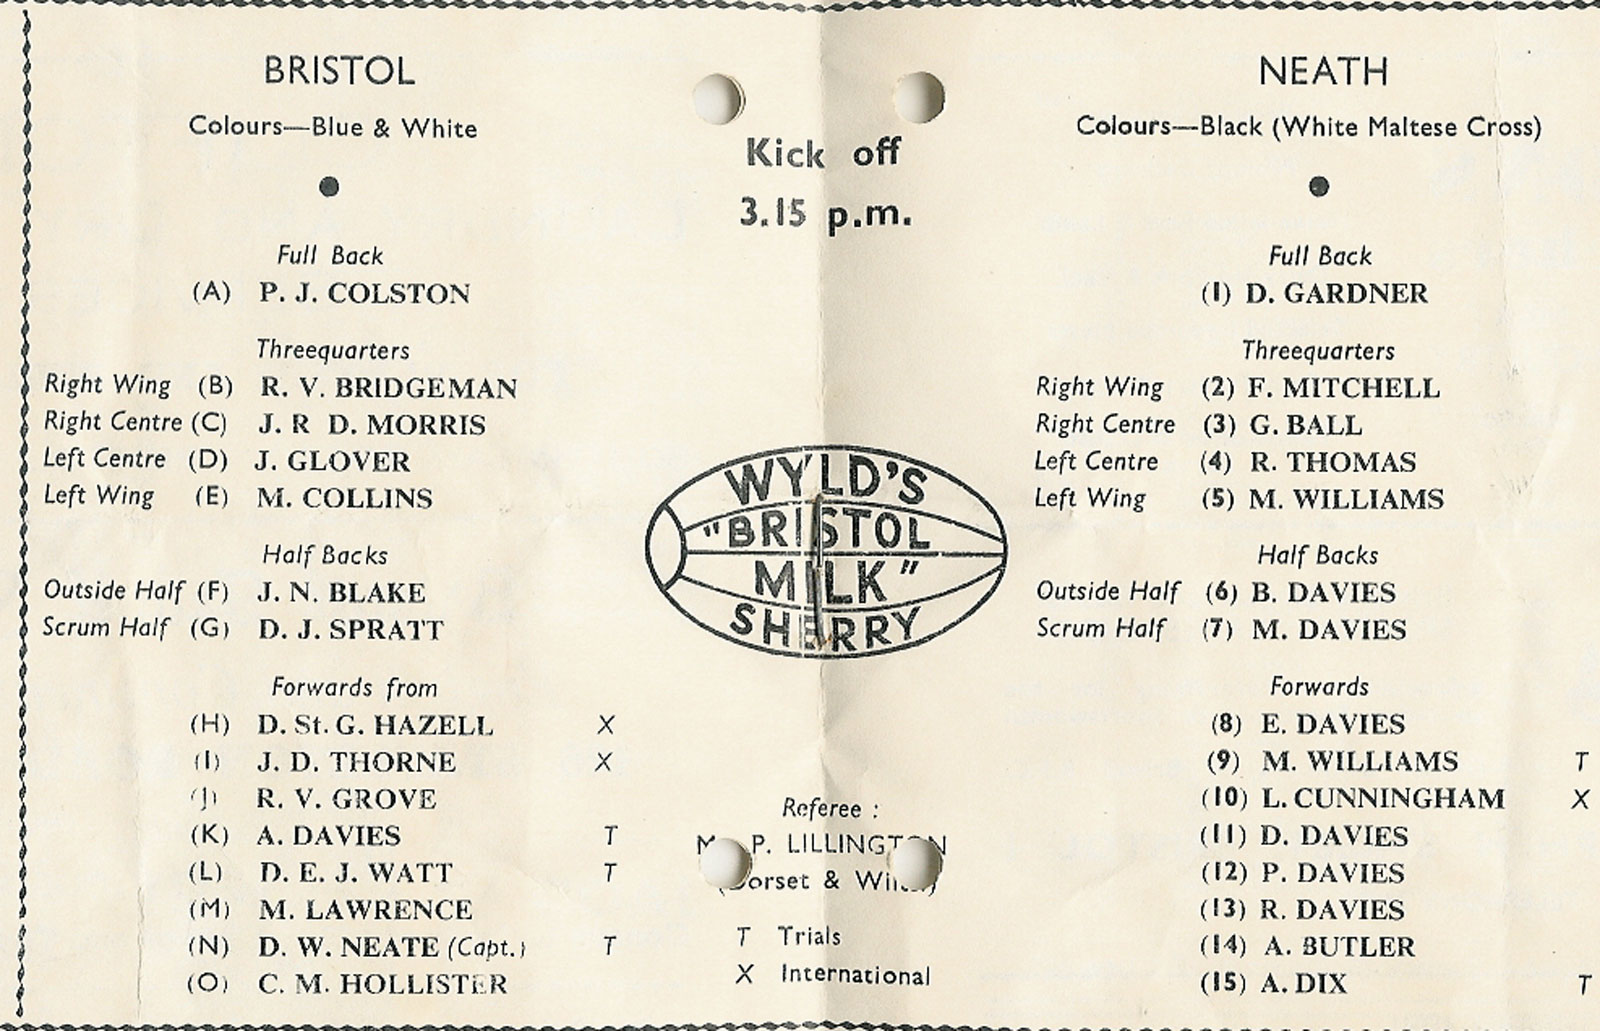 BRISTOL
Colours—Blue & White
Full Back
(A) P. J. COLSTON
Threequarters
Right Wing (B) R. V. BRIDGEMAN
Right Centre (C) J. R D. MORRIS
Left Centre (D) J. GLOVER
Left Wing (E) M. COLLINS
Half Backs
Outside Half (F) J. N. BLAKE
Scrum Half (G) D. J. SPRATT
Forwards from
(H) D. St. G. HAZELL X
(I) J. D. THORNE X
(J) R. V. GROVE
(K) A. DAVIES T
(L) D. E. J. WATT T
(M) M. LAWRENCE
(N) D. W. NEATE (Capt.) T
(O) C. M. HOLLISTER
Kick off
3.15 p.m.
WYLD'S
"BRISTOL
MILK"
SHERRY
Referee :
P. LILLINGTON
(Dorset & Wilts.)
T Trials
X International
NEATH
Colours—Black (White Maltese Cross)
Full Back
(1) D. GARDNER
Threequarters
Right Wing (2) F. MITCHELL
Right Centre (3) G. BALL
Left Centre (4) R. THOMAS
Left Wing (5) M. WILLIAMS
Half Backs
Outside Half (6) B. DAVIES
Scrum Half (7) M. DAVIES
Forwards
(8) E. DAVIES
(9) M. WILLIAMS T
(10) L. CUNNINGHAM X
(11) D. DAVIES
(12) P. DAVIES
(13) R. DAVIES
(14) A. BUTLER
(15) A. DIX T